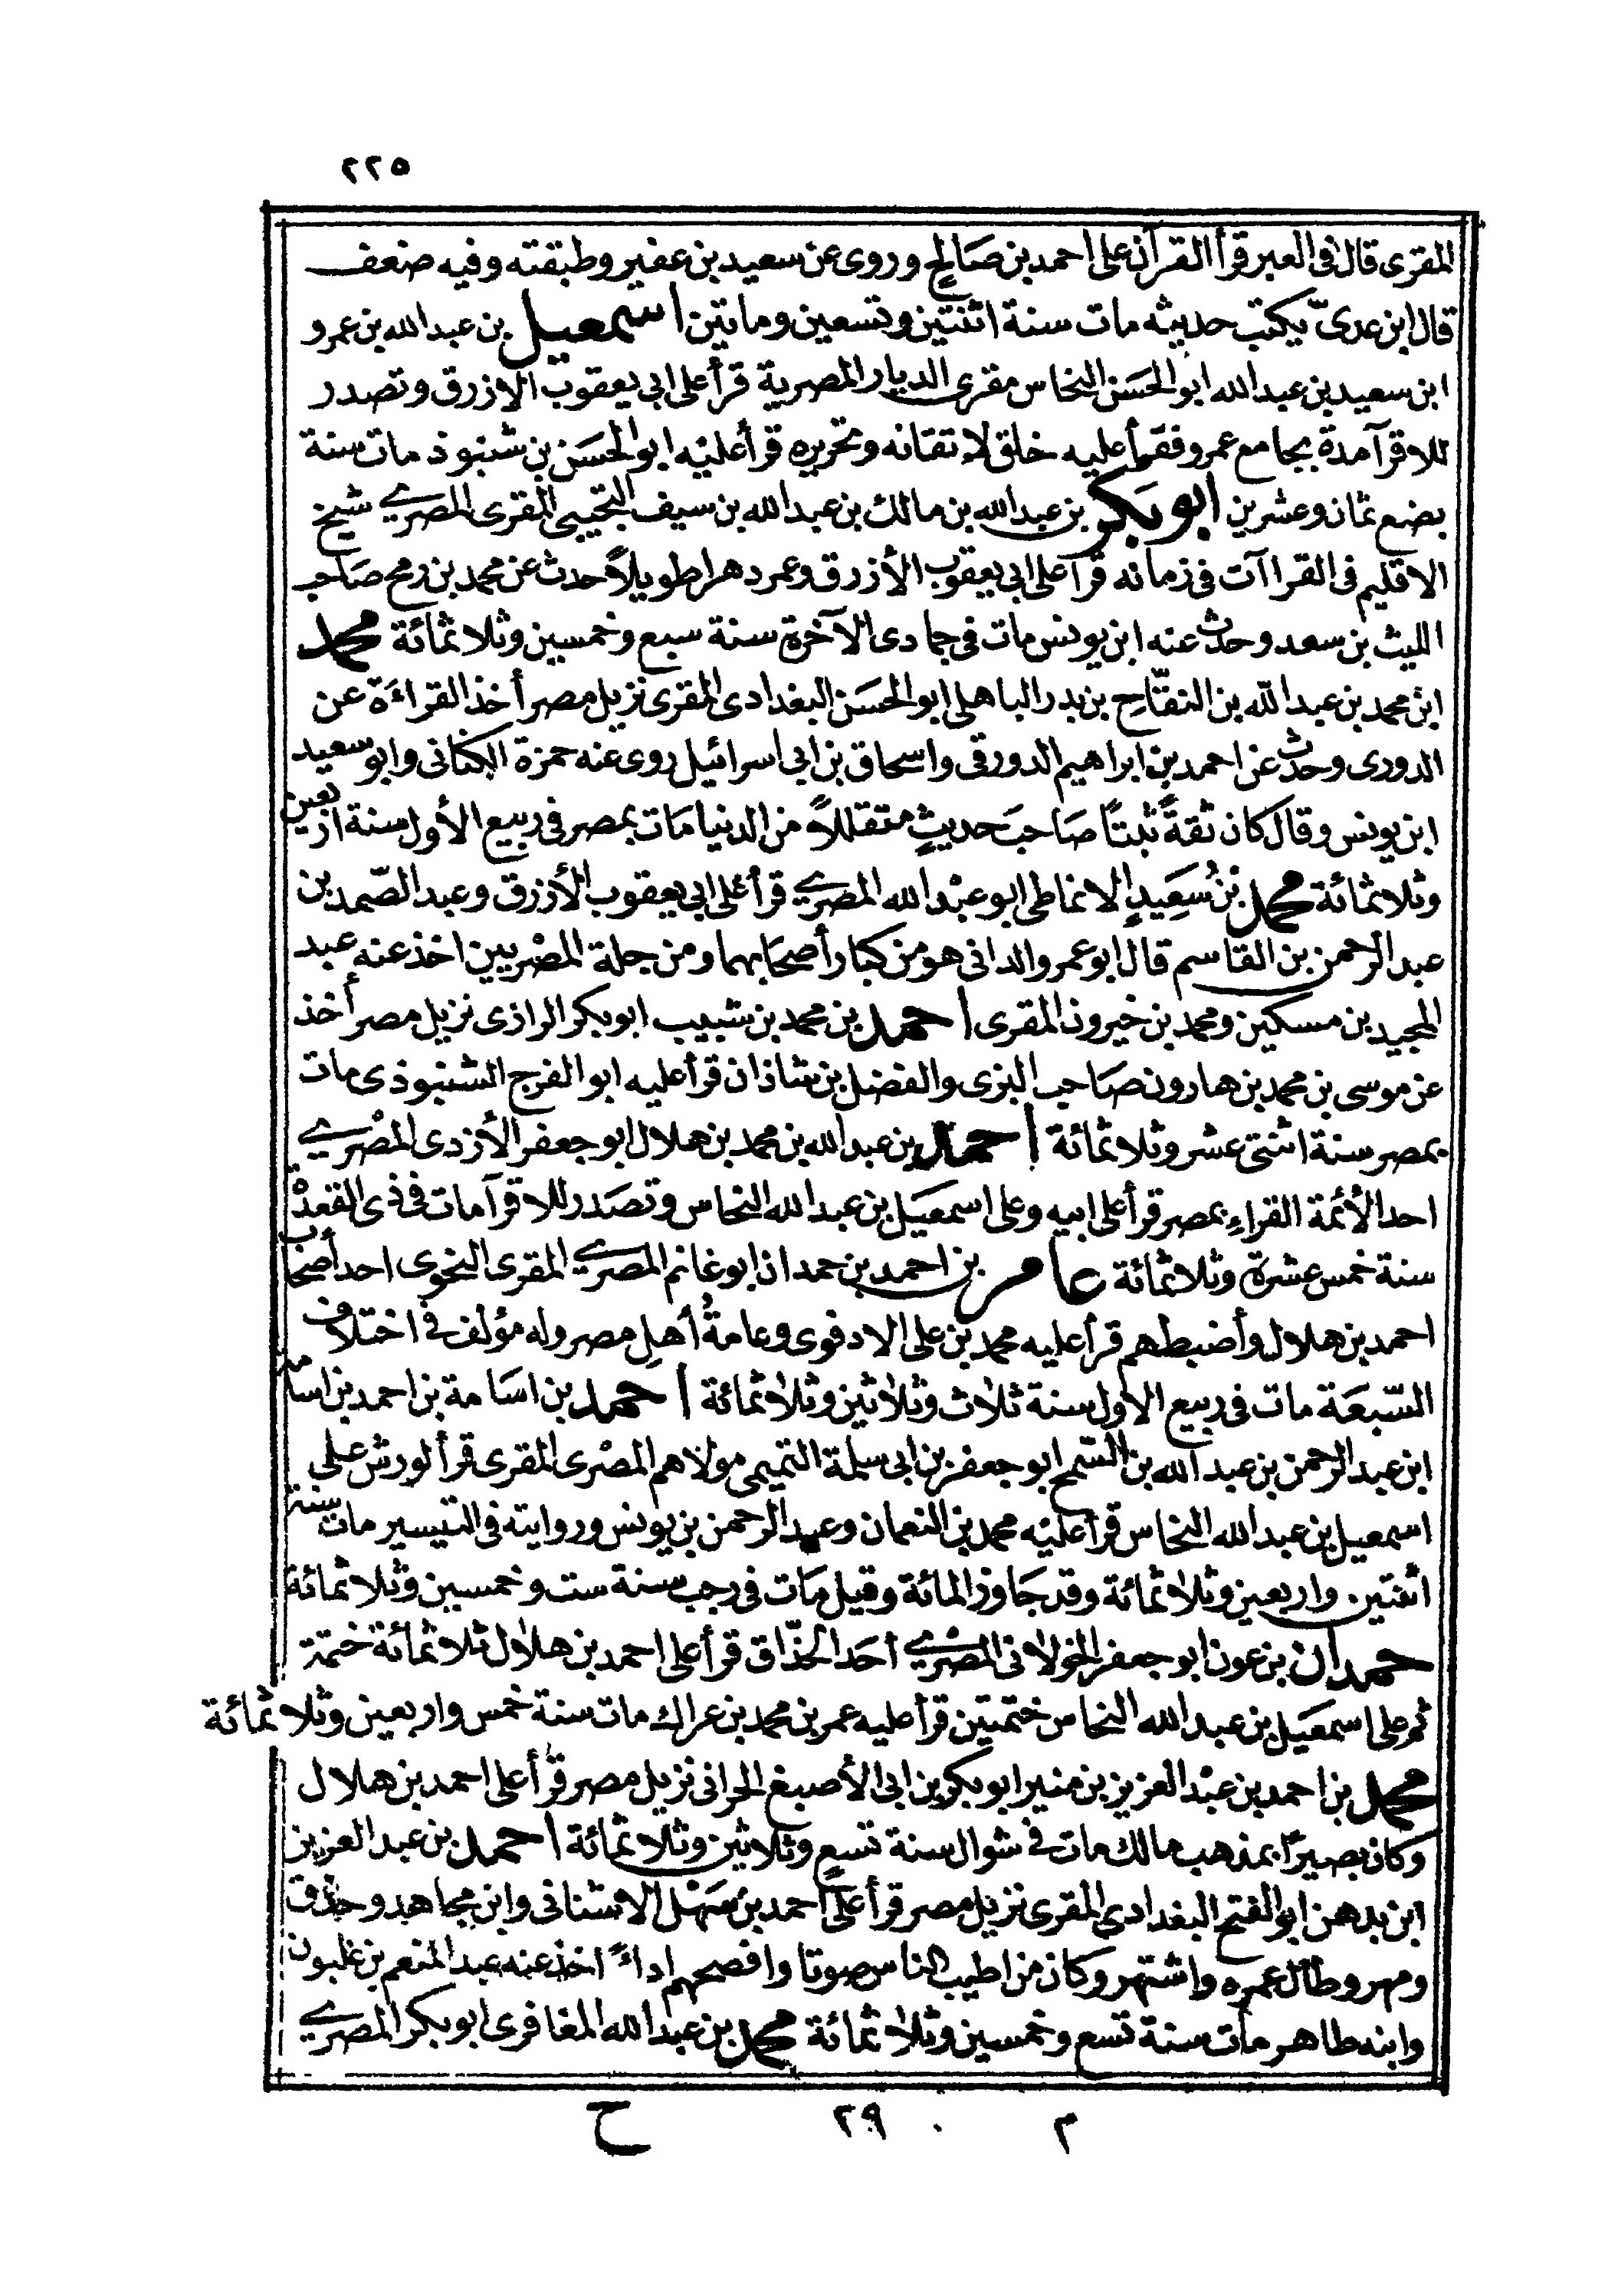 ٢٢٥
المقرى قال فى العبر قرأ القرآن على احمد بن صَالحٍ وروى عن سعيد بن عفير وطبقته وفيه ضعف
قال ابن عدىّ يكتب حديثه مات سنة اثنتين وتسعين وماتين اسمعيل بن عبد الله بن عمرو
ابن سعيد بن عبد الله ابو الحسَن النخاس مقرى الديار المصرية قرأ على ابى يعقوب الازرق وتصدر
للاقرآ مدة بجامع عمرو فقرأ عليه خلق لاتقانه وتحريره قرأ عليْه ابو الحسَن بن شنبوذ مات سنة
بضع ثمان وعشرين ابو بكر بن عبد الله بن مالك بن عبد الله بن سيف التجيبى المقرى المصرى شيخ
الاقليم فى القراآت فى زمانه قرأ على ابى يعقوب الأزرق وعمر دهرا طويلاً حدث عن محمد بن رمح صَاحب
الليث بن سعد وحدث عنه ابن يونس مات فى جمادى الآخرة سنة سبع وخمسين وثلاثمائة محمد
ابن محمد بن عبد الله بن النفّاح بن بدر الباهلى ابو الحسَن البغدادى المقرى نزيل مصر أخذ القراءَة عن
الدورى وحدث عن احمد بن ابراهيم الدورقى واسحاق بن ابى اسرائيل روى عنه حمزة الكنانى وابو سعيد
ابن يونس وقال كان ثقةً ثبتًا صَاحبَ حديثٍ متقللاً من الدنيا مَات بمصر فى ربيع الأول سنة اربعين
وثلاثمائة محمد بنُ سَعِيدٍ الانماطى ابو عبْد الله المصرى قرأ على ابى يعقوب الأزرق وعبد الصّمد بن
عبد الرحمن بن القاسم قال ابو عمرو الدانى هو من كبار أصحَابهما ومن جلة المصْريين اخذ عنه عبد
المجيد بن مسكين ومحمد بن خيرون المقرى احمد بن محمد بن شبيب ابو بكر الرازى نزيل مصر أخذ
عن موسى بن محمد بن هارون صَاحب البزى والفضل بن شاذان قرأ عليه ابو الفرج الشنبوذى مات
بمصر سنة اثنتى عشر وثلاثمائة احمد بن عبد الله بن محمد بن هلال ابو جعفر الأزدى المصْرى
احد الأئمة القراء بمصر قرأ على ابيه وعلى اسمعيل بن عبد الله النحاس وتصَدر للاقرآ مات فى ذى القعدْة
سنة خمس عشرة وثلاثمائة عامر بن احمد بن حمدان ابو غانم المصرى المقرى النحوى احد أصحاب
احمد بن هلال وأضبطهم قرأ عليه محمد بن على الادفوى وعامةُ أهلِ مصر وله مؤلف فى اختلاف
السّبعَة مات فى ربيع الاول سنة ثلاث وثلاثين وثلاثمائة احمد بن اسَامة بن احمد بن اسامة
ابن عبد الرحمن بن عبد الله بن السّمح ابو جعفر بن ابى سلمة التميمى مولاهم المصْرى المقرى قرأ لورش على
اسمعيل بن عبد الله النحاس قرأ عليْه محمد بن النعمان وعبد الرحمن بن يونس وروايته فى التيسير مات سنة
اثنتين واربعين وثلاثمائة وقد جَاوز المائة وقيل مَات فى رجب سنة ست وخمسين وثلاثمائة
حمدان بن عون ابو جعفر الخولانى المصْرى أحَد الحذّاق قرأ على احمد بن هلال ثلاثمائة ختمة
ثم على اسمعَيل بن عبد الله النحاس ختمتين قرأ عليه عمر بن محمد بن عراك مات سنة خمس واربعين وثلاثمائة
محمد بن احمد بن عبْد العزيز بن منير ابو بكر بن ابى الأصبغ الحرانى نزيل مصر قرأ على احمد بن هلال
وكان بصيرًا بمذهب مالك مات فى شوال سنة تسع وثلاثين وثلاثمائة احمد بن عبد العزيز
ابن بدهن ابو الفتح البغدادى المقرى نزيل مصر قرأ على احمد بن سَهْل الاشنانى وابن مجاهد وحذق
ومهر وطال عمره واشتهر وكان من اطيب الناس صوتا وافصحهم اداءً اخذ عنه عبد المنعم بن غلبون
وابنه طاهر مات سنة تسع وخمسين وثلاثمائة محمد بن عبد الله المعافرى ابو بكر المصرى
م ٢٩ ح